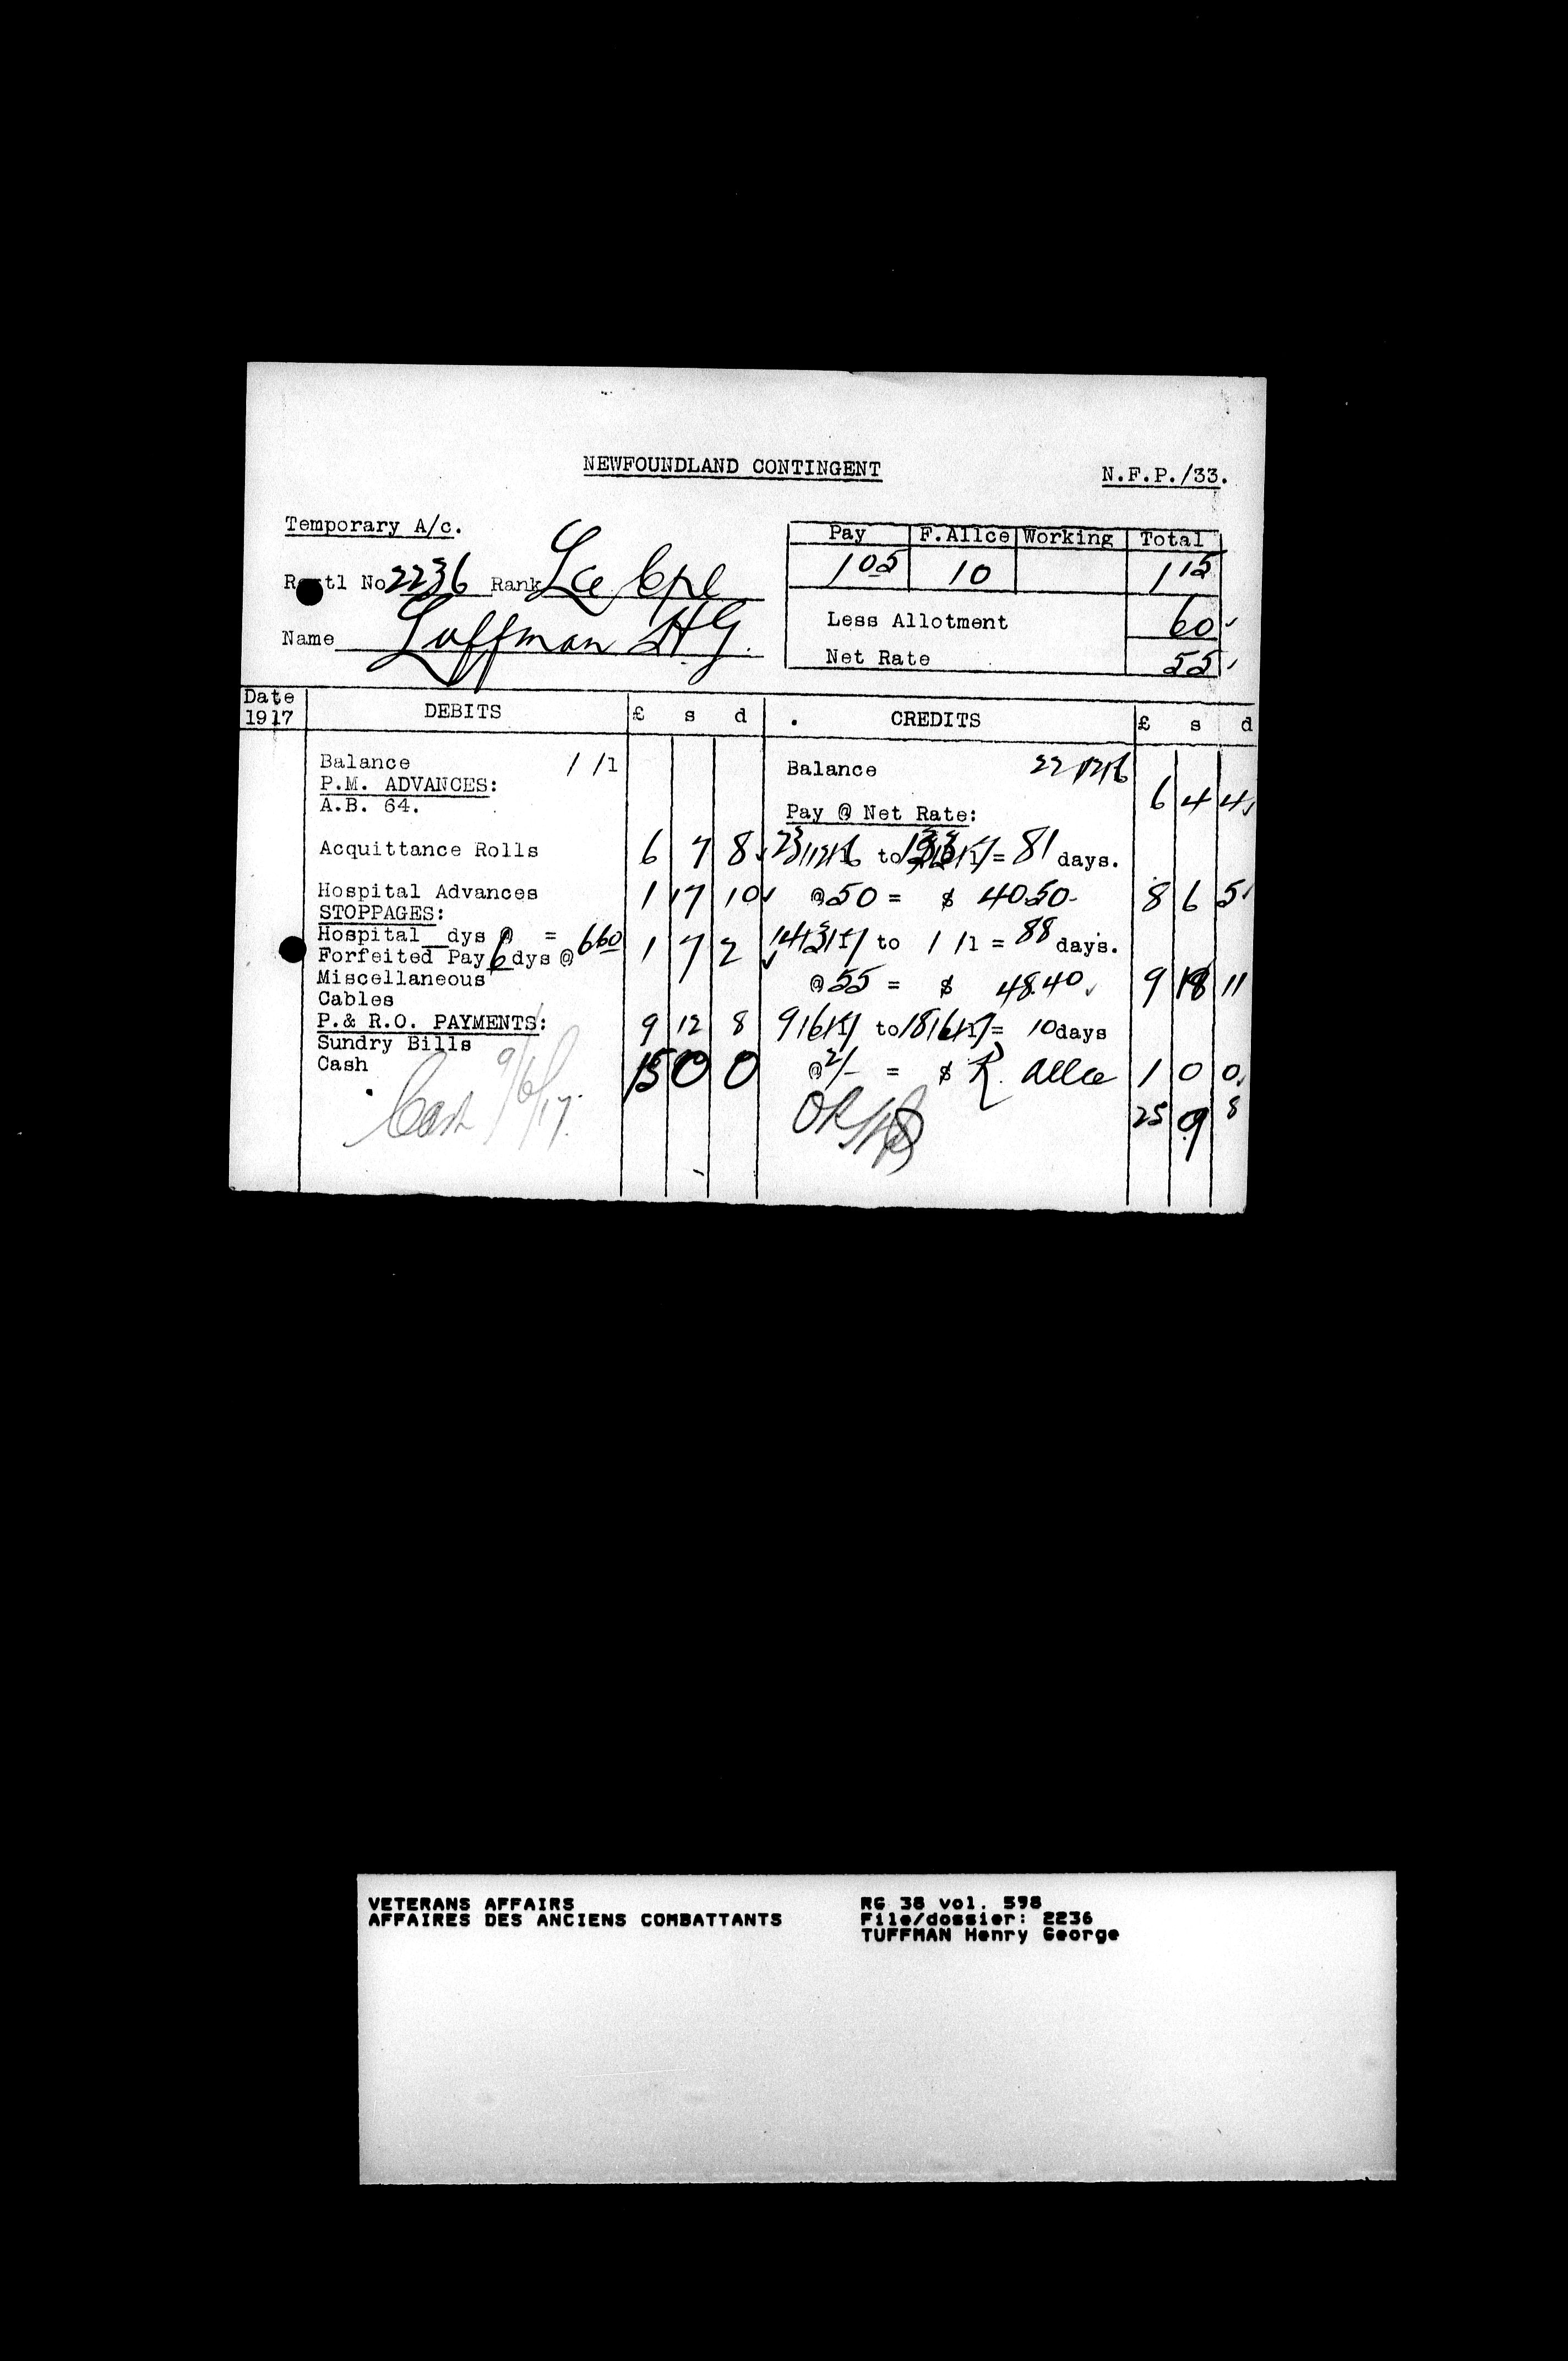 NEWFOUNDLAND CONTINGENT
N.F.P./33.
Temporary A/c.
Pay F.Allce Working Total
1 05 10 1 15
R tl No 2236 Rank Lce Cpl
Less Allotment 60
Name Luffman H.G.
Net Rate 55
Date 1917 DEBITS £ s d CREDITS £ s d
Balance / /1 Balance 22/12/16 6 4 4
P.M. ADVANCES:
A.B. 64. Pay @ Net Rate:
Acquittance Rolls 6 7 8 23/12/16 to = 81 days.
Hospital Advances 1 17 10 @ 50 = $ 40.50 8 6 5
STOPPAGES:
Hospital dys @ = 14/3/17 to / /1 = 88 days.
Forfeited Pay 6 dys @ 660 1 7 2
Miscellaneous @ 55 = $ 48.40 9 18 11
Cables
P.& R.O. PAYMENTS: 9 12 8 9/6/17 to 18/6/17 = 10 days
Sundry Bills
Cash 15 0 0 @ 2/- = $ R. Allce 1 0 0
Cash 9/6/17. OK 25 9 8
VETERANS AFFAIRS RG 38 vol. 598
AFFAIRES DES ANCIENS COMBATTANTS File/dossier: 2236
TUFFMAN Henry George